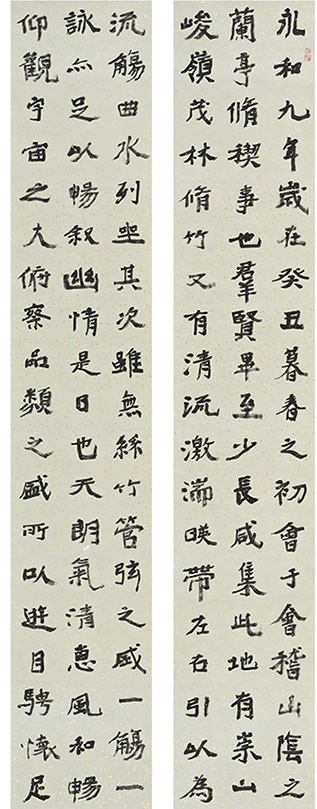 永和九年歲在癸丑暮春之初會于會稽山陰之
蘭亭脩稧事也羣賢畢至少長咸集此地有崇山
峻嶺茂林脩竹又有清流激湍暎帶左右引以為
流觴曲水列坐其次雖無絲竹管弦之盛一觴一
詠亦足以暢叙幽情是日也天朗氣清惠風和暢
仰觀宇宙之大俯察品類之盛所以遊目騁懷足